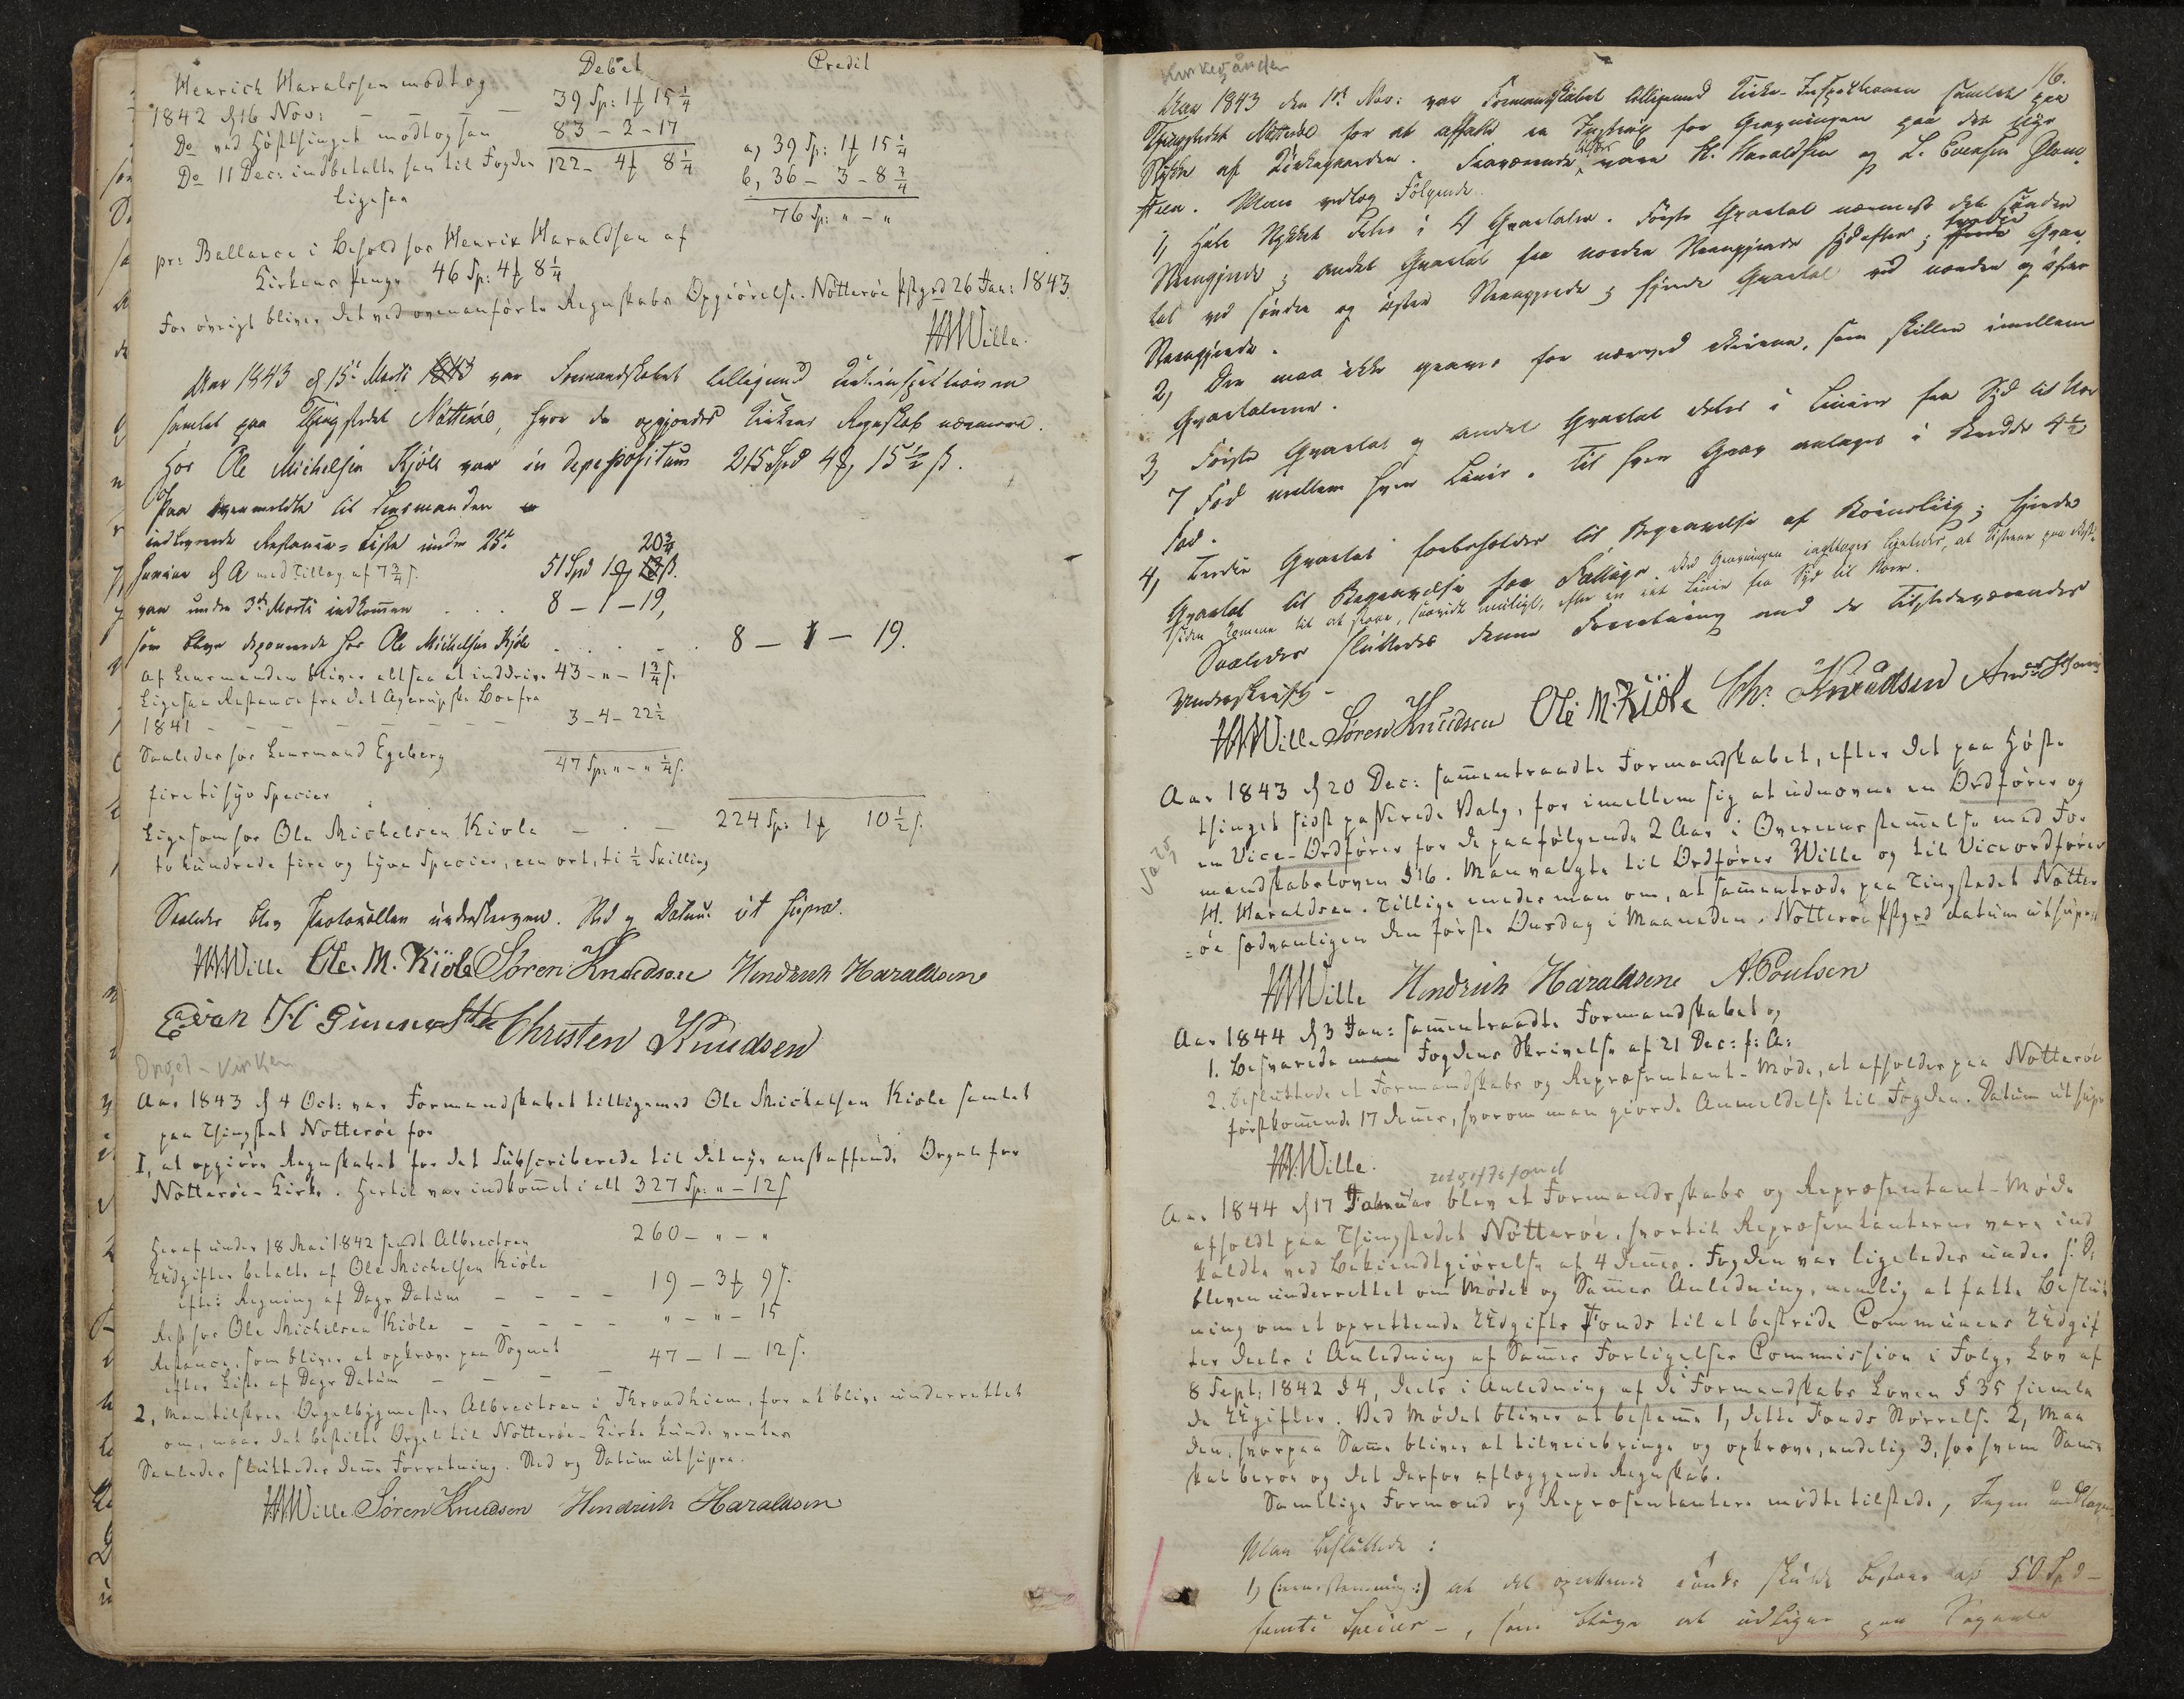 Debet Credit
Henrich Haralssen modtog
1842 d 16 Nov: — — 39 Sp: 1 ƒ 15 1/4
Do ved Høstthinget modtog han 83 – 2 – 17
a, 39 Sp: 1 ƒ 15 1/4
Do 11 Dec: indbetalte han til Fogden 122 – 4 ƒ 8 1/4
b, 36 – 3 – 8 3/4
ligesaa
76 Sp: " – "
pr: Ballance i Behold hos Henrik Haraldsen af
Kirkens Penge 46 Sp: 4 ƒ 8 1/4
For øvrigt bliver det ved ovenanførte Regnskabs Opgiørelse. Nøtterøe Pstgrd 26 Jan: 1843.
HWille.
Aar 1843 d 15de Marti 1843 var Formandskabet tilligemed Kirkeinspektionen
samlet paa Thingstedet Nøtterøe, hvor da opgjordes Kirkens Regnskab nærmere.
Hos Ole Michelsen Kjøle var in depositum 215 Spd 4 ƒ 15 1/2 ß.
Paa ovenmeldte til Lensmanden
indleverede Restance-Liste under 25de
20 3/4
Januar d A med Tillæg af 7 3/4 s. 51 Spd 1 ƒ 13 ß.
var under 3de Marti indkommen . . . 8 – 1 – 19,
som bleve deponerede hos Ole Michelsen Kjøle . . . . . 8 – 1 – 19.
Af Lensmanden bliver altsaa at inddrive 43 – " – 1 3/4 s.
Ligesaa Restance fra det Agerupske Boe fra
1841 – – – – – – 3 – 4 – 22 1/2
Saaledes hos Lensmand Egeberg 47 Sp: " – " 1/4 s.
firetisyv Species
Ligesom hos Ole Michelsen Kiøle — . — 224 Sp: 1 ƒ 10 1/2 s.
to hundrede fire og tyve Species, een ort, ti 1/2 Skilling
Saaledes blev Protocollen underskreven. Sted og Datum ut supra.
HWille Ole. M. Kiøle Søren Knudsen Hendrich Haraldsen
Evan H Gunnestad Christen Knudsen
Orgel – Kirken
Aar 1843 d 4 Oct: var Formandskabet tilligemed Ole Michelsen Kiøle samlet
paa Thingstedet Nøtterøe for
I, at opgiøre Regnskabet for det Subscriberede til det nye anskaffende Orgel for
Nøtterøe-Kirke. Hertil var indkomet i alt 327 Sp: " – 12 s
Heraf under 18 Mai 1842 sendt Albrectsen 260 – " – "
Udgifter betalte af Ole Michelsen Kiøle
efter Regning af Dags Datum — — — — 19 – 3 ƒ 9 s.
Rest hos Ole Michelsen Kiøle — — — — " – " – 15
Restance, som bliver at opkræve paa Sognet
efter Liste af Dags Datum — — — — 47 – 1 – 12 s.
2, Man tilskrev Orgelbygmester Albrectsen i Throndhiem, for at blive underrettet
om, naar det bestilte Orgel til Nøtterøe-Kirke kunde ventes
Saaledes sluttedes denne Forretning. Sted og Datum ut supra.
HWille. Søren Knudsen Hendrich Haraldsen
Kirkegården
16.
Aar 1843 den 1ste Nov: var Formandskabet tilligemed Kirke-Inspektionen samlet paa
Thingstedet Nøtterøe for at affatte en Instrux for Gravningen paa det nye
Stykke af Kirkegaarden. Fraværende vare H. Haraldsen og L. Evensen Glom-
stein. Man vedtog Følgende.
1, Hele Stykket deles i 4 Qvartaler. Første Qvartal nærmest det søndre
Steengjerde; andet Qvartal fra norden Steengjerde sydefter; tredie Qvar-
tal ved søndre og østre Steengjerde; fjerde Qvartal ved norden og østre
Steengjerde.
2, Der maa ikke graves for nærved Veiene, som skiller imellem
Qvartalerne.
3, Første Qvartal og andet Qvartal deles i Linier fra Syd til Nor
7 Fod mellem hver Linie. Til hver Grav anlages i Bredde 4 1/2
Fod.
4, Tredie Qvartal forbeholdes til Begravelse af Kjøbeliig; fjerde
Qvartal til Begravelse for Fattige. Ved Gravningen iagttages ligeledes, at Kisterne paa Vest-
siden komme til at staae, saavidt muligt, efter en ret Linie fra Syd til Nord.
Saaledes sluttedes denne Forretning med de Tilstedeværendes
Underskrift –
HWille Søren Knudsen Ole M. Kiøle Chr. Knudsen
Aar 1843 d 20 Dec: sammentraadte Formandskabet, efter det paa Høst-
thinget sidst passerede Valg, for imellem sig at udnævne en Ordfører og
Valg
en Vice-Ordfører for de paafølgende 2 Aar i Overeensstemmelse med For-
mandskabsloven § 16. Man valgte til Ordfører Wille og til Viceordfører
H. Haraldsen. Tillige enedes man om, at sammentræde paa Tingstedet Nøtter-
=øe sædvanligen den første Onsdag i Maaneden. Nøtterøe Pstgrd datum ut supra
HWille Hendrich Haraldsene A. Poulsen
Aar 1844 d 3 Jan: sammentraadte Formandskabet og
1. Besvarede man Fogdens Skrivelse af 21 Dec: f: A:
2. Besluttede et Formandskabs og Repræsentant-Møde, at afholdes paa Nøtterøe
førstkommende 17 dennes, hvorom man giorde Anmeldelse til Fogden. Datum ut supra
HWille.
Aar 1844 d 17 Januar blev et Formandsskabs og Repræsentant-Møde
afholdt paa Thingstedet Nøtterøe, hvortil Repræsentanterne vare ind-
kaldte ved Bekiendtgiørelse af 4 dennes. Fogden var ligeledes under s: D:
bleven underrettet om Mødet og Sammes Anledning, nemlig at fatte Beslut-
ning om et oprettende Udgifts Fonds til at bestride Communens Udgif-
ter deels i Anledning af Sammes Forligelses Commission i Følge Lov af
8 Sept: 1842 § 4, deels i Anledning af de i Formandskabs Loven § 35 hiemle-
de Udgifter. Ved Mødet bliver at bestemme 1, dette Fonds Størrelse 2, Maa-
den, hvorpaa Samme bliver at tilveiebringe og opkræve, endelig 3, hos hvem Samme
skal beroe og det derfor aflæggende Regnskab.
Samtlige Formænd og Repræsentantere mødte tilstede,
Man besluttede :
1, (eenstemmig:) at det oprettende Fonds skulde bestaae af 50 Spd –
femti Species –, som bliver at udligne paa Sognets